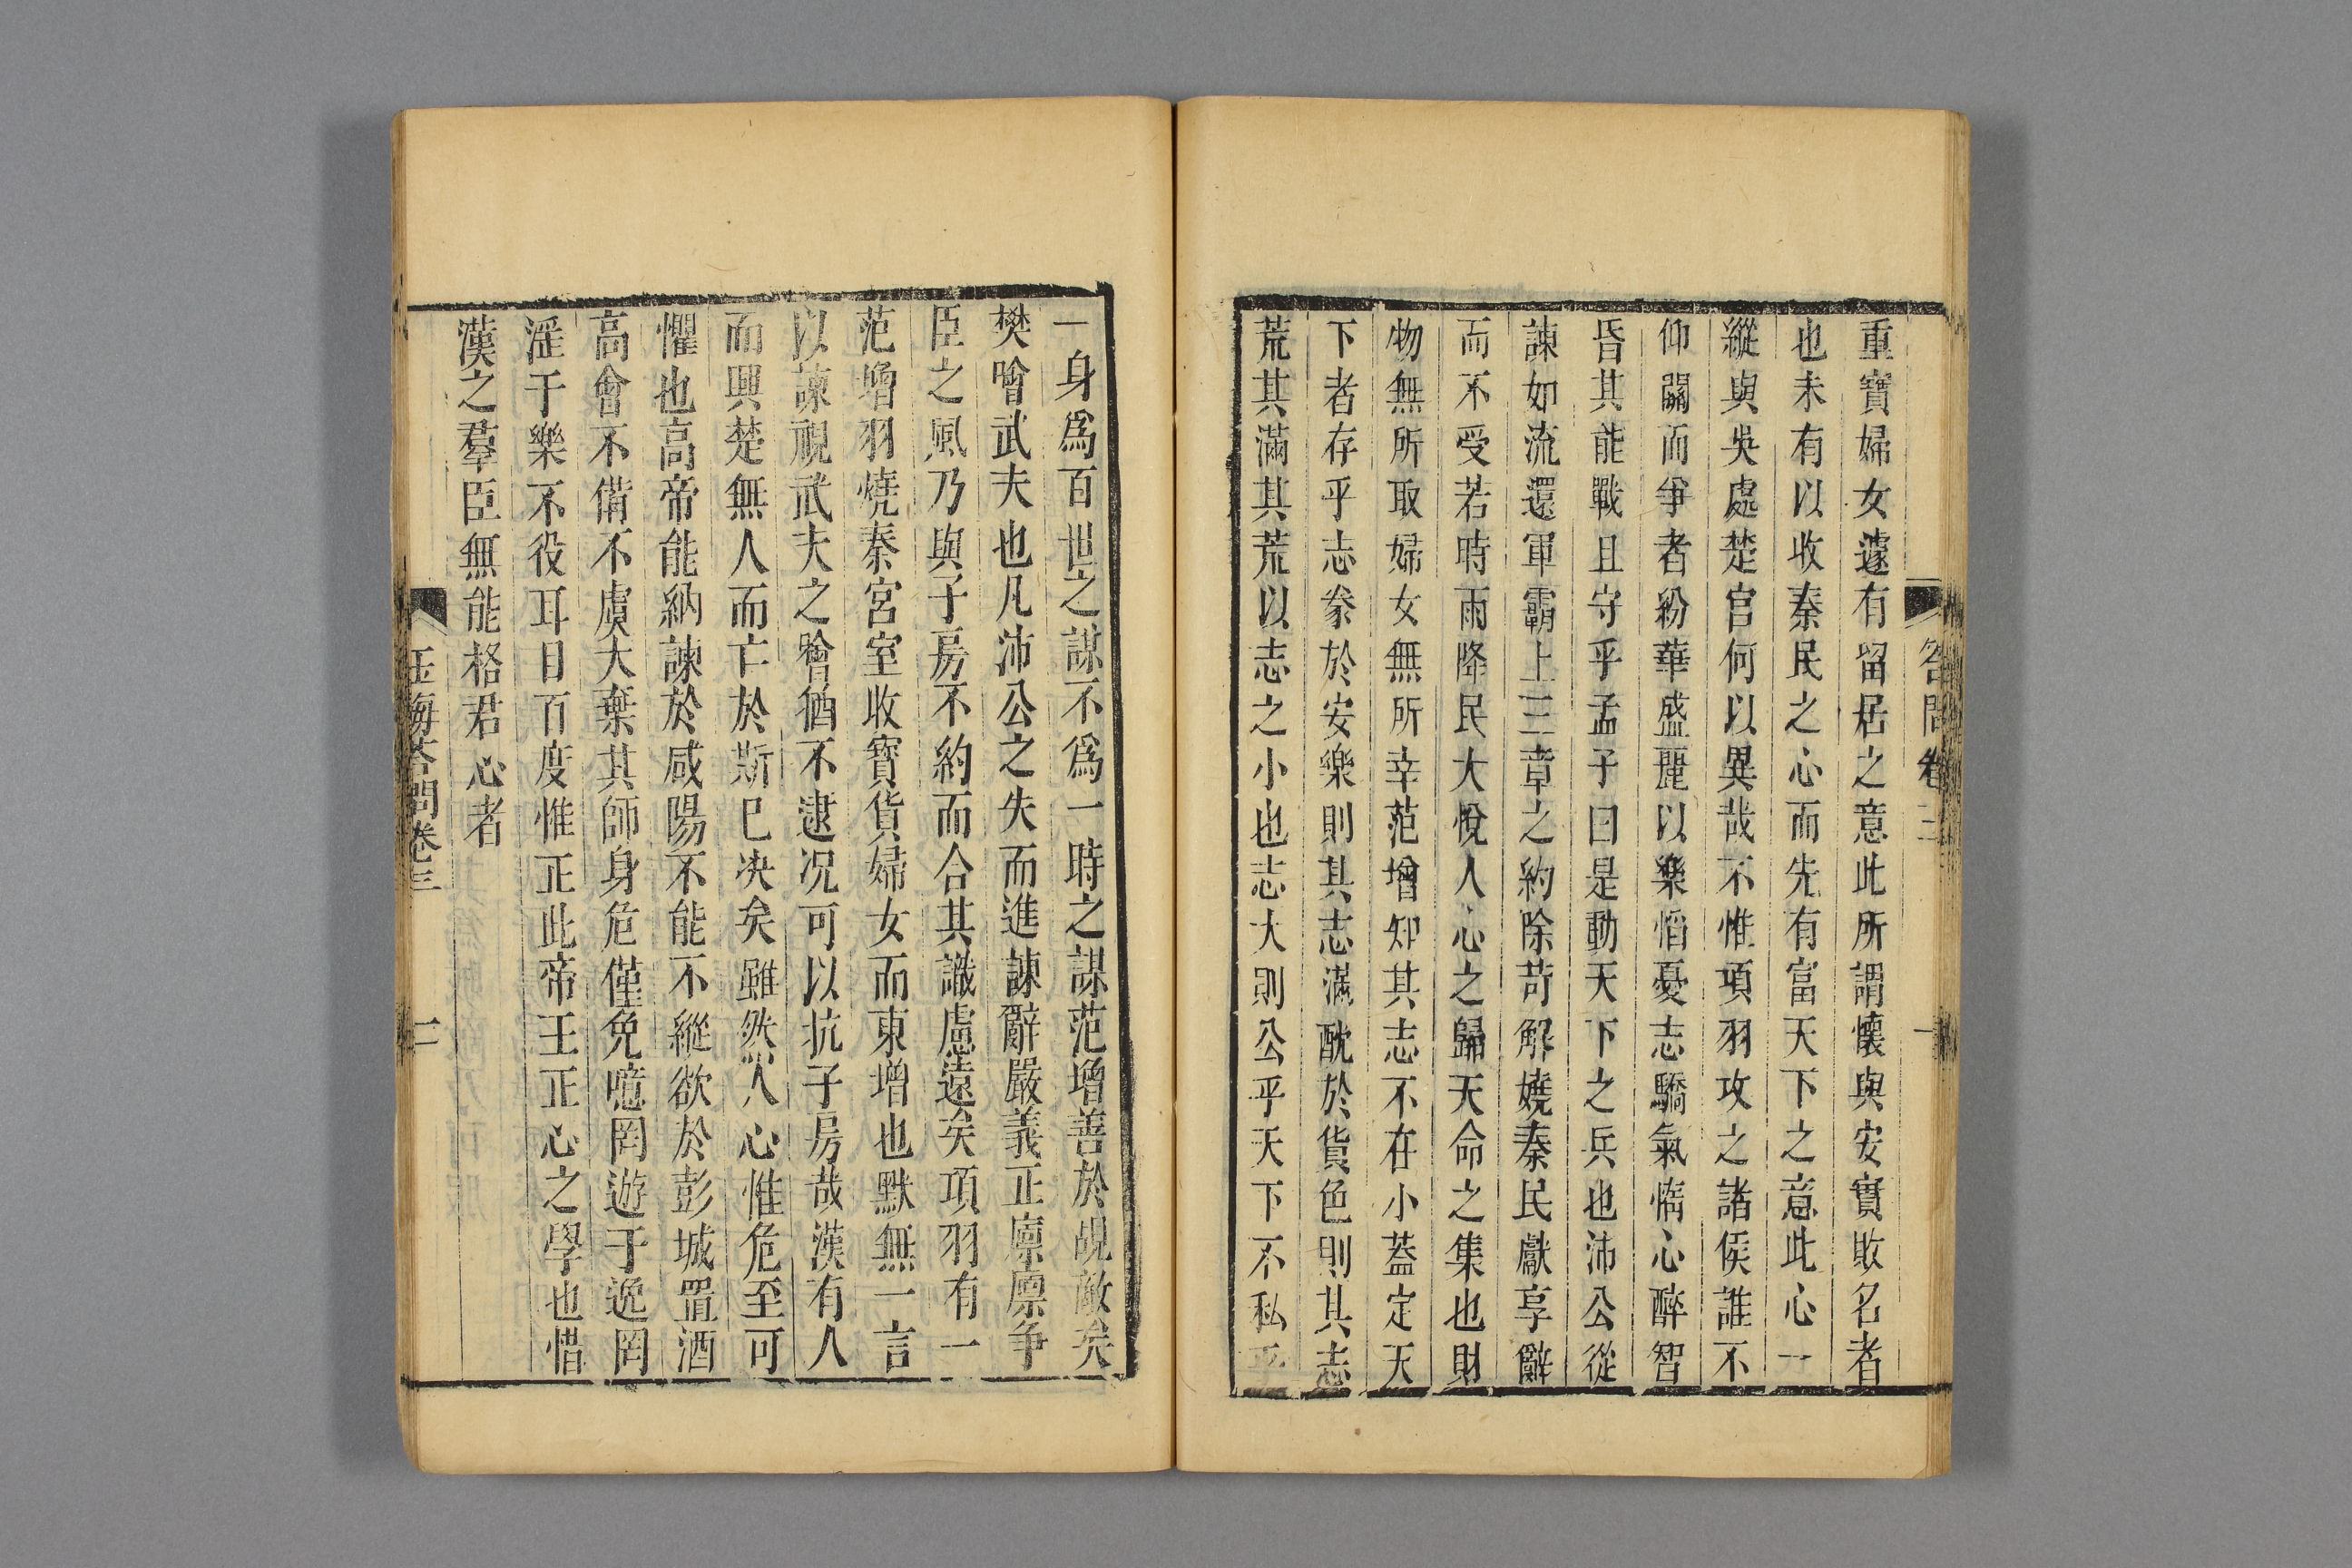 答問卷三
一
重寶婦女遽有留居之意此所謂懷與安實敗名者
也未有以收秦民之心而先有富天下之意此心一
縱與吳處楚宫何以異哉不惟項羽攻之諸侯誰不
仰關而爭者紛華盛麗以樂慆憂志驕氣惰心醉智
昏其能戰且守乎孟子曰是動天下之兵也沛公從
諫如流還軍霸上三章之約除苛解嬈秦民獻享辭
而不受若時雨降民大悅人心之歸天命之集也財
物無所取婦女無所幸范增知其志不在小蓋定天
下者存乎志豢於安樂則其志滿酖於貨色則其志
荒其滿其荒以志之小也志大則公乎天下不私乎
一身爲百世之謀不爲一時之謀范增善於覘敵矣
樊噲武夫也凡沛公之失而進諫辭嚴義正凜凜爭
臣之風乃與子房不約而合其識慮遠矣項羽有一
范增羽燒秦宮室收寶貨婦女而東增也默無一言
以諫視武夫之噲猶不逮况可以抗子房哉漢有人
而興楚無人而亡於斯已决矣雖然人心惟危至可
懼也高帝能納諫於咸陽不能不縱欲於彭城置酒
高會不備不虞大棄其師身危僅免噫罔遊于逸罔
淫于樂不役耳目百度惟正此帝王正心之學也惜
漢之羣臣無能格君心者
玉海答問卷三
二